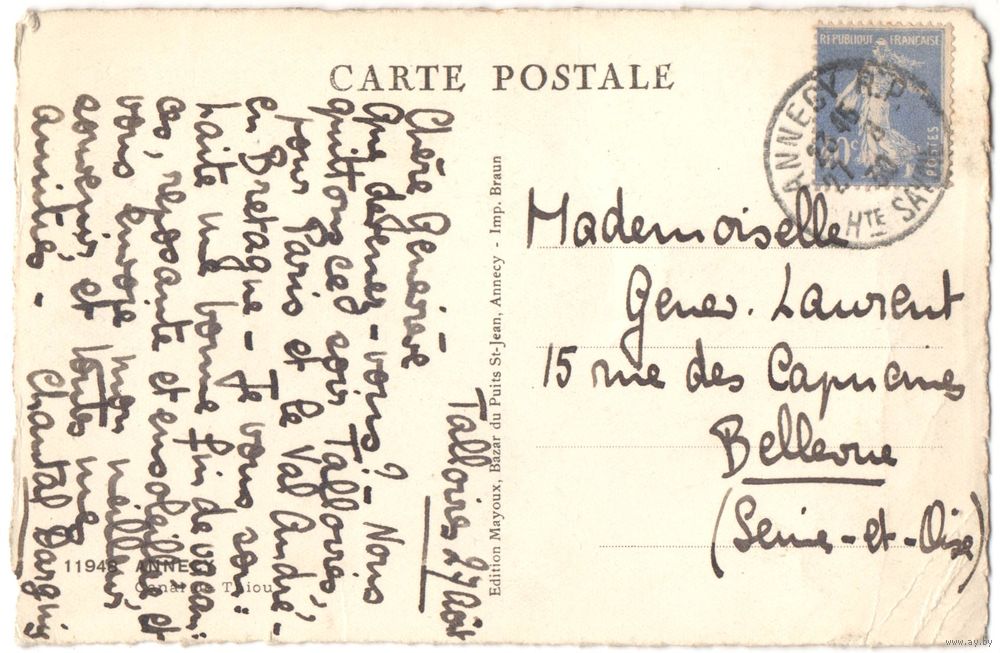 CARTE POSTALE
Talloires 27 Août
Chère Geneviève
Que devenez-vous? - Nous
quittons ce soir Talloires,
pour Paris et le Val André,
en Bretagne - Je vous sou-
haite une bonne fin de vacan-
ces, reposante et ensoleillée et
vous envoie mon meilleur
souvenir et toutes mes
amitiés -
Chantal
11948 ANNECY
Canal du Thiou
Edition Mayoux, Bazar du Puits St-Jean, Annecy - Imp. Braun
REPUBLIQUE FRANÇAISE
POSTES
ANNECY R.P.
HTE SAVOIE
Mademoiselle
Genev. Laurent
15 rue des Capucines
Bellevue
(Seine-et-Oise)
www.ay.by